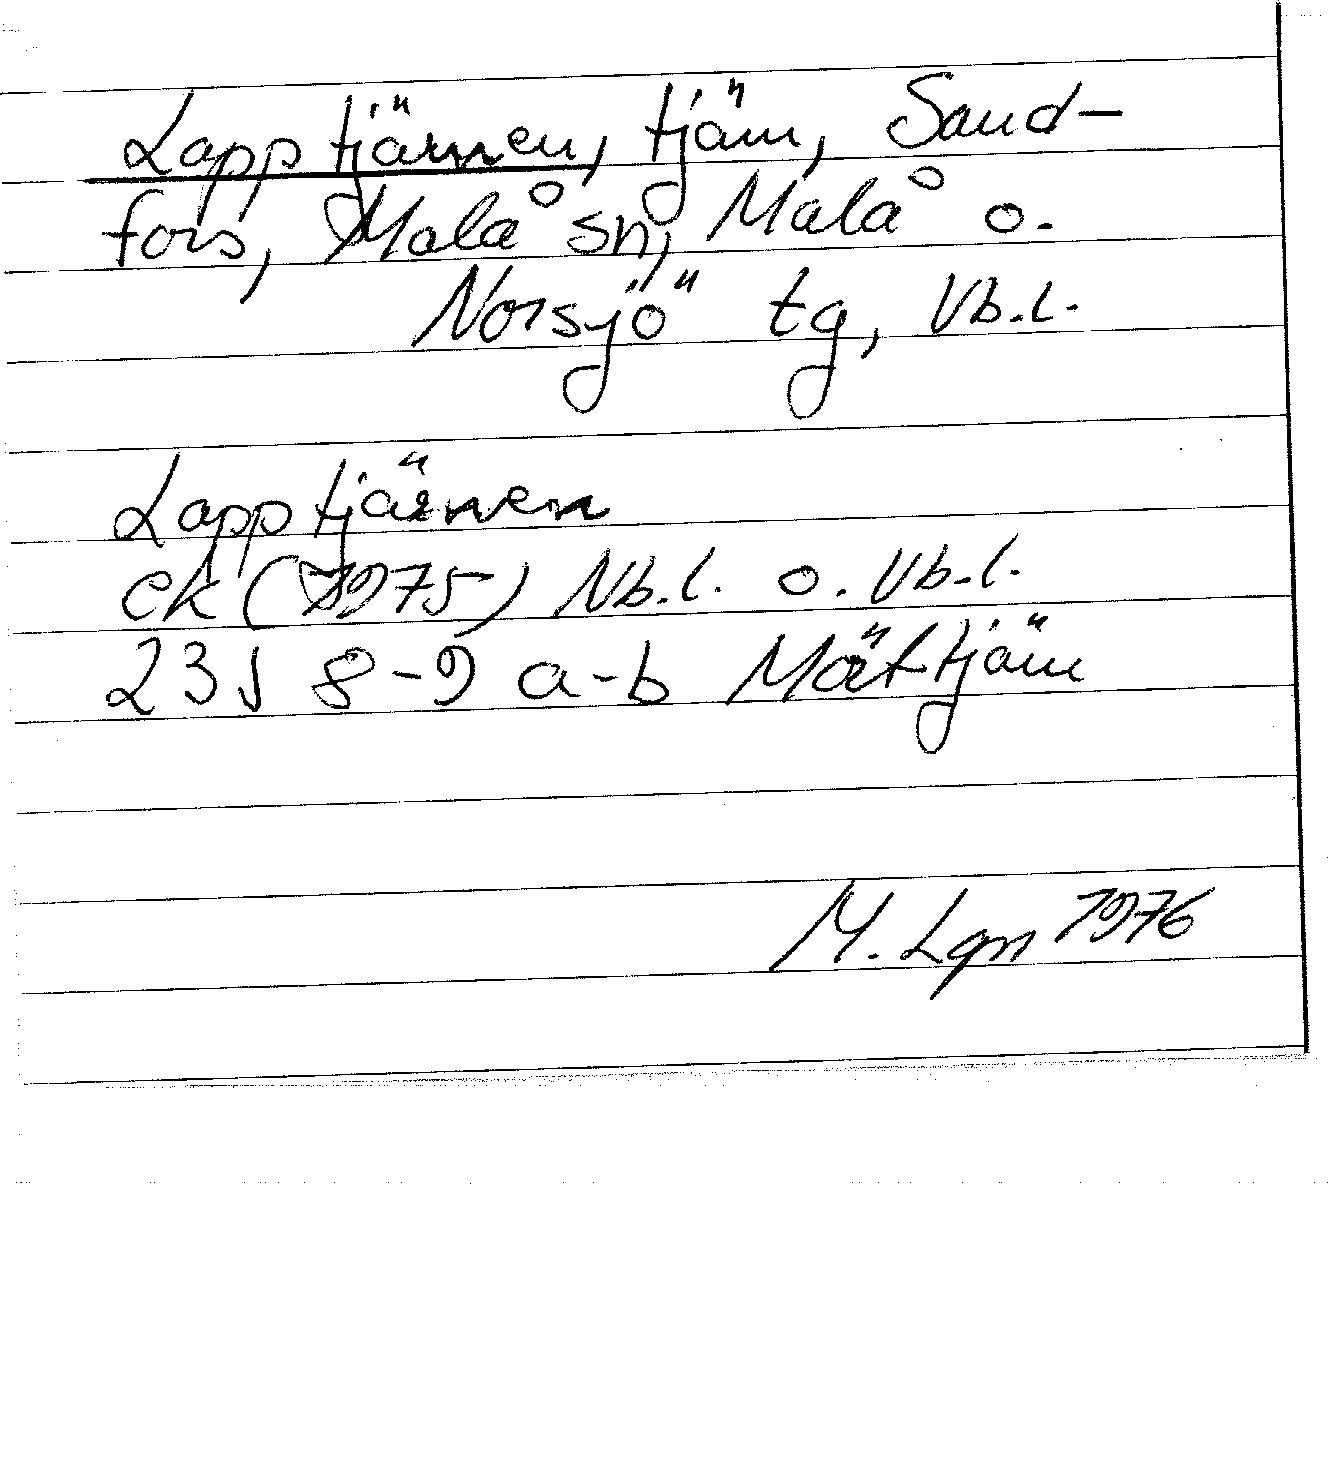 Lapptjärnen, tjärn, Sand-
fors, Malå sn, Malå o.
Norsjö tg, Vb.l.
Lapptjärnen
ek (1975) Nb.l. o. Vb.l.
23J 8-9 a-b Mättjärn
M. Lgn 1976